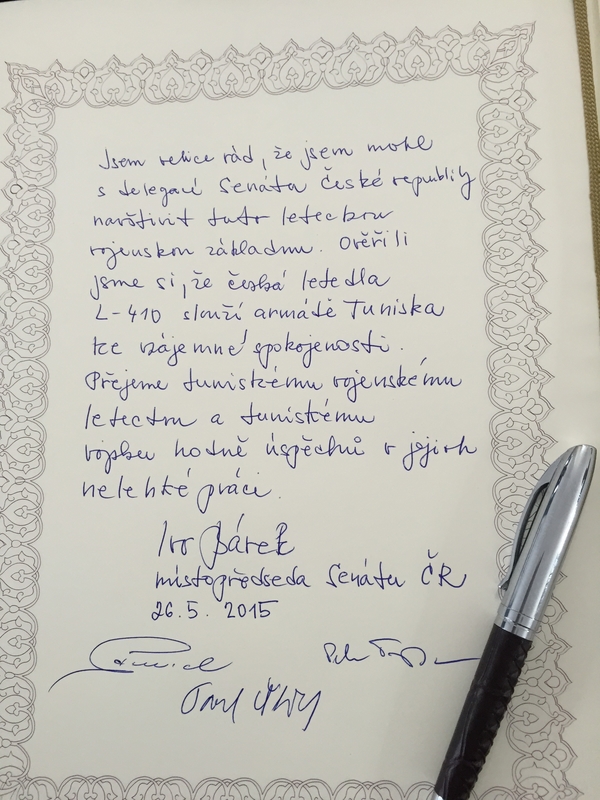 Jsem velice rád, že jsem mohl
s delegací Senátu České republiky
navštívit tuto leteckou
vojenskou základnu. Ověřili
jsme si, že česká letadla
L-410 slouží armádě Tuniska
ke vzájemné spokojenosti.
Přejeme tuniskému vojenskému
letectvu a tuniskému
vojsku hodně úspěchů v jejich
nelehké práci.
Ivo Bárek
místopředseda Senátu ČR
26.5. 2015